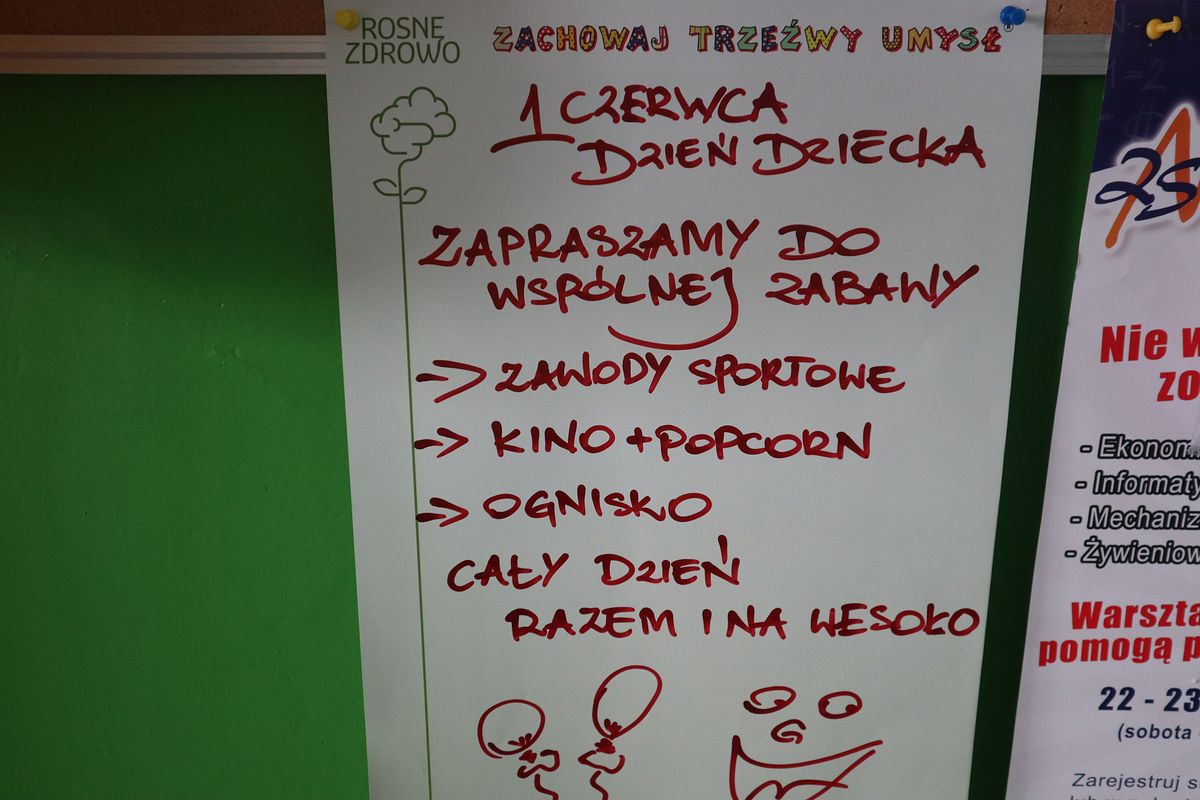 ROSNĘ
ZDROWO
ZACHOWAJ TRZEŹWY UMYSŁ
1 CZERWCA
DZIEŃ DZIECKA
ZAPRASZAMY DO
WSPÓLNEJ ZABAWY
→ ZAWODY SPORTOWE
→ KINO + POPCORN
→ OGNISKO
CAŁY DZIEŃ
RAZEM I NA WESOŁO
25
Nie
- Ekonom
- Informaty
- Mechaniz
- Żywieniow
Warszta
pomogą p
22 - 23
(sobota
Zarejestruj s